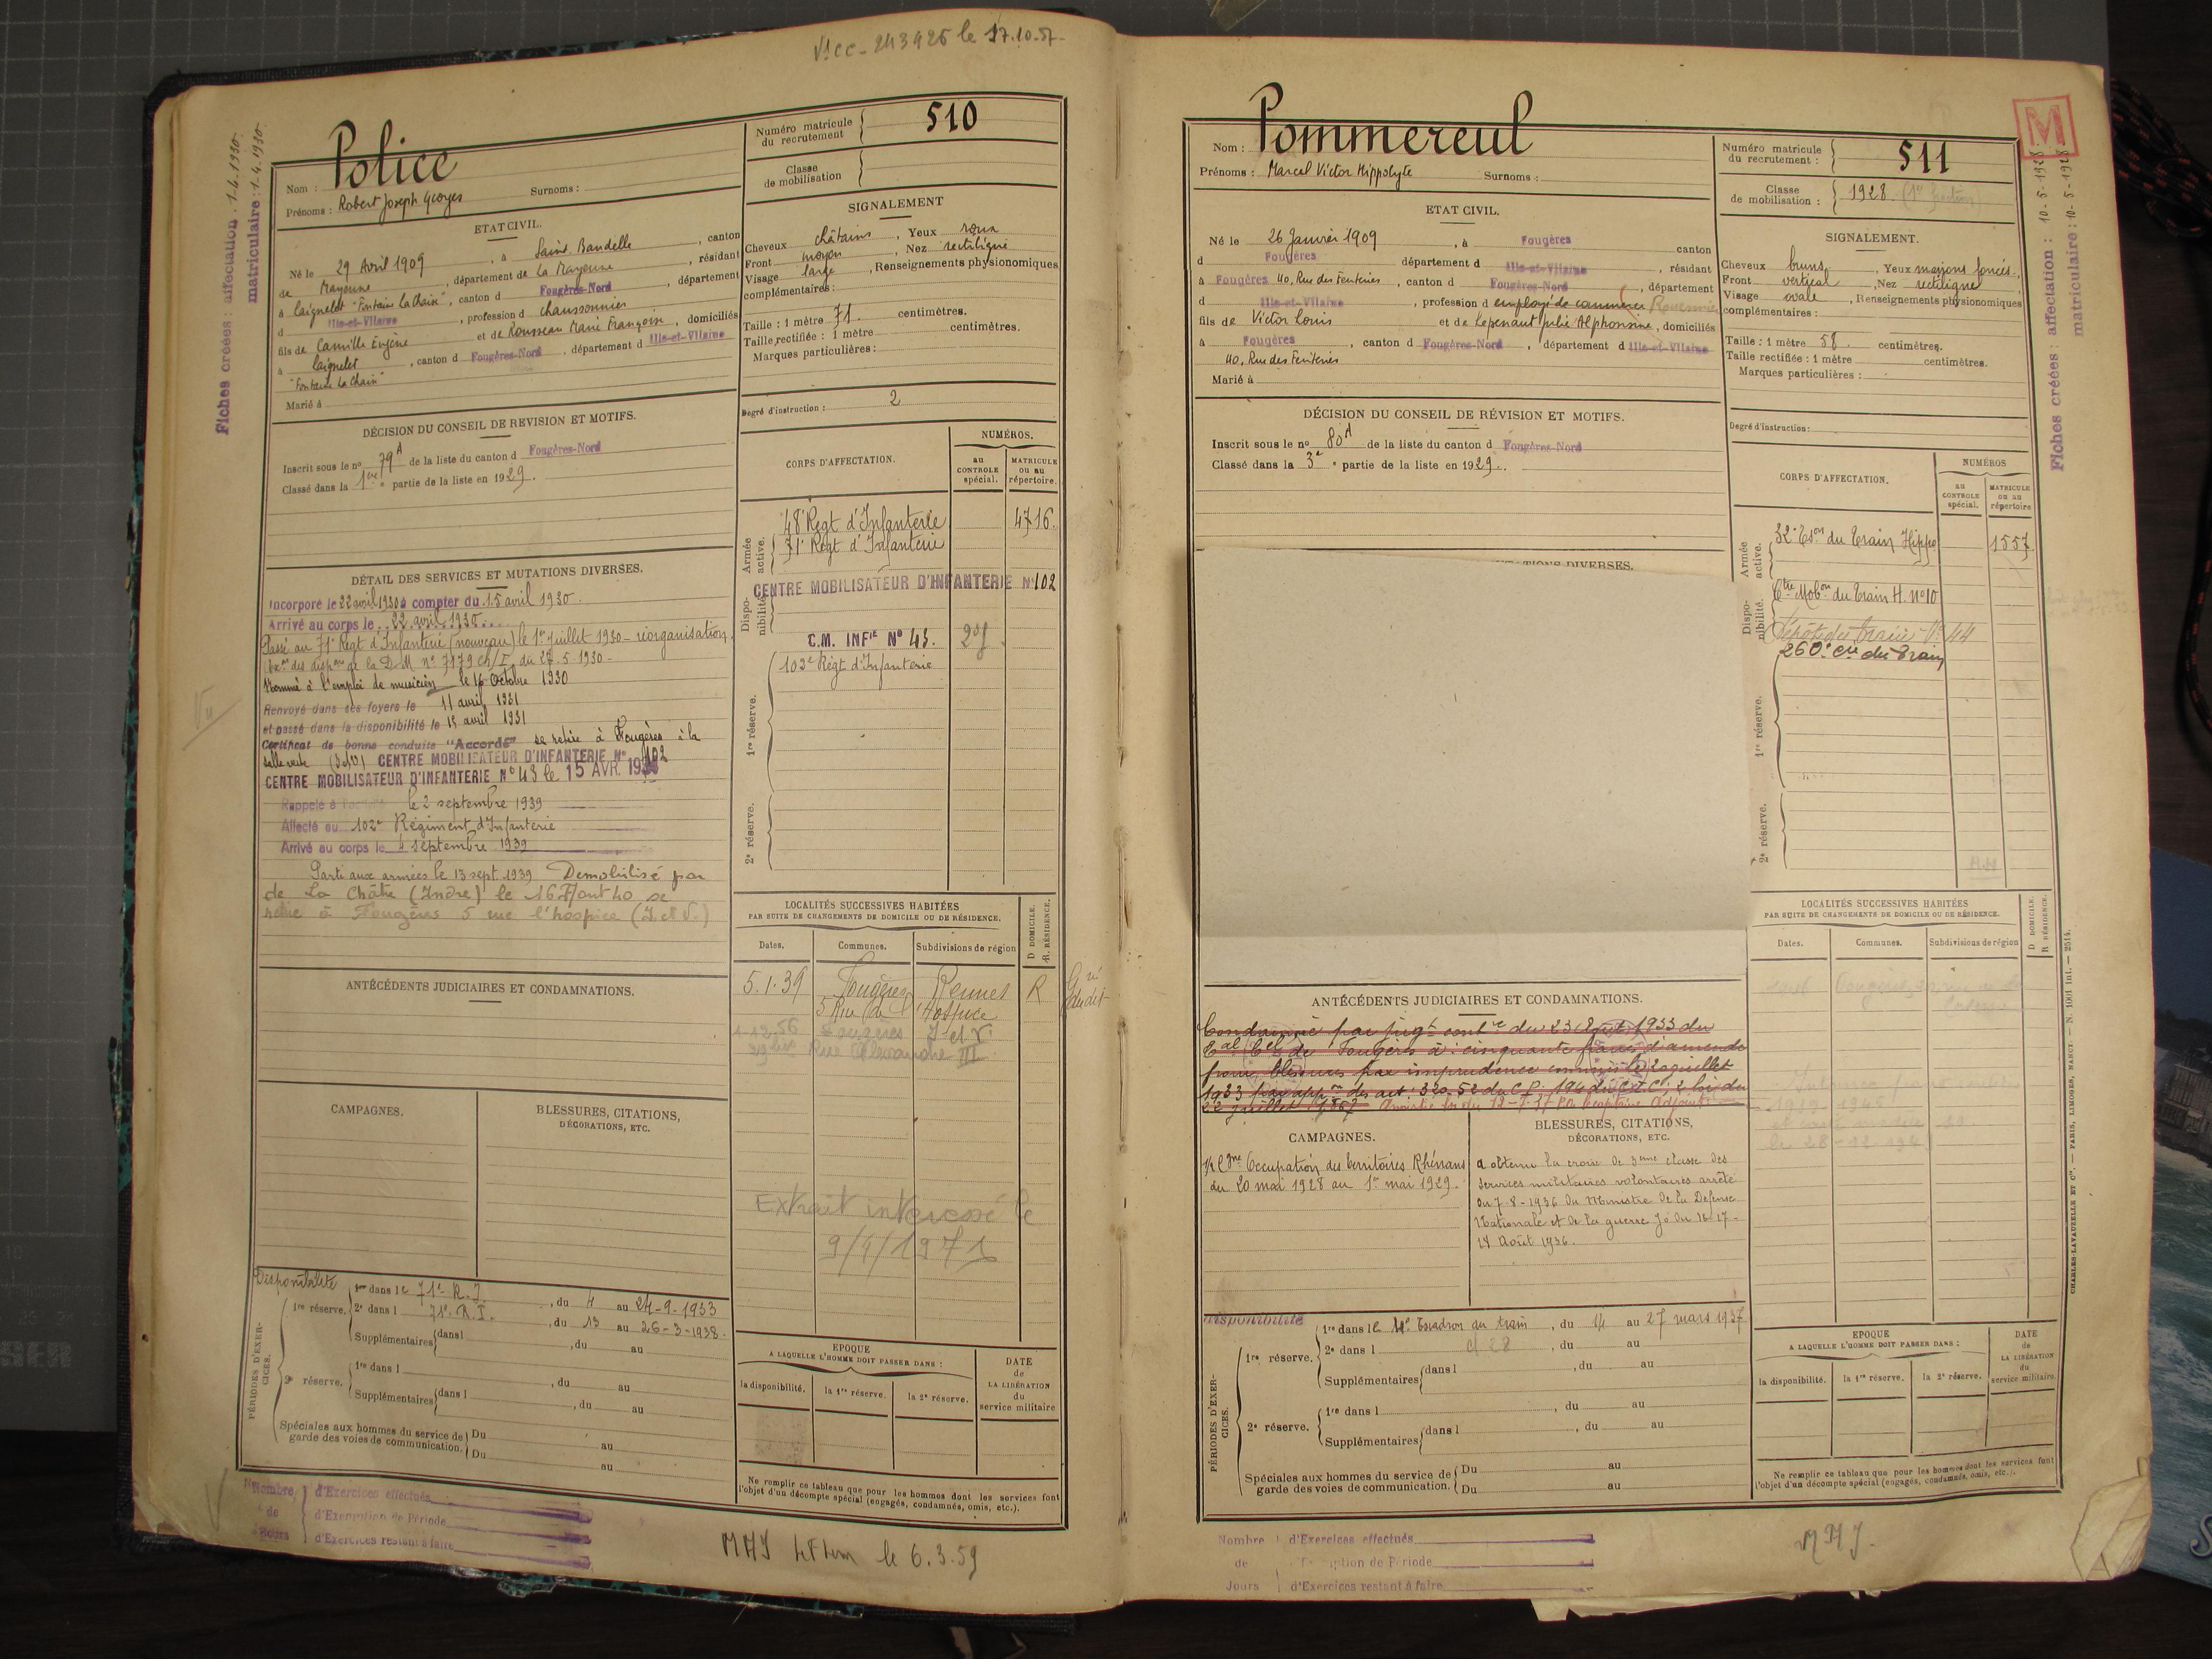 le 17.10.57
Fiches créées : affectation : 1-4-1930.
matriculaire : 1-4-1930
Nom : Police
Prénoms : Robert Joseph Georges Surnoms :
ETAT CIVIL.
Né le 29 Avril 1909, à Saint Baudelle, canton
de Mayenne, département de La Mayenne, résidant
à Laignelet "Fontaine La Chaise", canton d Fougères-Nord, département
d Ille-et-Vilaine, profession d chaussonnier
fils de Camille Eugène et de Rousseau Marie Françoise, domiciliés
à Laignelet, canton d Fougères-Nord, département d Ille-et-Vilaine
"Fontaine La Chaise"
Marié à
Numéro matricule du recrutement 510
Classe de mobilisation
SIGNALEMENT
Cheveux châtains, Yeux roux
Front moyen, Nez rectiligne
Visage large, Renseignements physionomiques
complémentaires :
Taille : 1 mètre 71. centimètres.
Taille rectifiée : 1 mètre centimètres.
Marques particulières :
Degré d'instruction : 2
DÉCISION DU CONSEIL DE REVISION ET MOTIFS.
Inscrit sous le n° 79 A de la liste du canton d Fougères-Nord
Classé dans la 1ère partie de la liste en 1929.
DÉTAIL DES SERVICES ET MUTATIONS DIVERSES.
Incorporé le 22 avril 1930 à compter du 15 avril 1930.
Arrivé au corps le 22 avril 1930
Passé au 71e Régt d'Infanterie (nouveau) le 1er Juillet 1930 - réorganisation
des de la D.M. n° 7179 du 27-5-1930-
Nommé à l'emploi de musicien le 16 Octobre 1930
Renvoyé dans ses foyers le 11 avril 1931
et passé dans la disponibilité le 15 avril 1931
Certificat de bonne conduite "Accordé" se retire à Fougères à la
CENTRE MOBILISATEUR D'INFANTERIE N° 102
CENTRE MOBILISATEUR D'INFANTERIE N° 43 le 15 AVR.
Rappelé à l'activité le 2 septembre 1939
Affecté au 102e Régiment d'Infanterie
Arrivé au corps le 4 septembre 1939
Parti aux armées le 13 sept 1939 Démobilisé par
de La Châtre (Indre) le 16 Aout 40 se
retire à Fougères 5 rue l'hospice (I. et V.)
CORPS D'AFFECTATION.
NUMÉROS.
au CONTROLE spécial.
MATRICULE ou au répertoire.
Armée active.
48e Régt d'Infanterie 4716.
71e Régt d'Infanterie
Disponibilité.
CENTRE MOBILISATEUR D'INFANTERIE N° 102
C.M. INFIE N° 43.
1re réserve.
102e Régt d'Infanterie
2e réserve.
ANTÉCÉDENTS JUDICIAIRES ET CONDAMNATIONS.
LOCALITÉS SUCCESSIVES HABITÉES
PAR SUITE DE CHANGEMENTS DE DOMICILE OU DE RÉSIDENCE.
D DOMICILE. R. RÉSIDENCE.
Dates. Communes. Subdivisions de région
5.1.39 Fougères Rennes R
5 Rue de l'Hospice
1-12-56 Fougères I et V
Rue Alexandre III
Extrait le
9/4/1971
CAMPAGNES.
BLESSURES, CITATIONS, DÉCORATIONS, ETC.
PÉRIODES D'EXERCICES.
Disponibilité
1re réserve. 1re dans le 71e R.I., du 4 au 24-9-1933
2e dans l 71e R.I., du 13 au 26-3-1938.
Supplémentaires dans l , du au
2e réserve. 1re dans l , du au
Supplémentaires dans l , du au
Spéciales aux hommes du service de garde des voies de communication. Du au
Du au
EPOQUE
A LAQUELLE L'HOMME DOIT PASSER DANS :
la disponibilité. la 1re réserve. la 2e réserve.
DATE de LA LIBÉRATION du service militaire
Ne remplir ce tableau que pour les hommes dont les services font
l'objet d'un décompte spécial (engagés, condamnés, omis, etc.).
Nombre de Jours
d'Exercices effectués
d'Exemption de Période
d'Exercices restant à faire
le 6.3.59
M
Nom : Pommereul
Prénoms : Marcel Victor Hippolyte Surnoms :
ETAT CIVIL.
Né le 26 Janvier 1909, à Fougères canton
d Fougères département d Ille-et-Vilaine, résidant
à Fougères 40, Rue des Feuteries, canton d Fougères-Nord, département
d Ille-et-Vilaine, profession d employé de commerce
fils de Victor Louis et de Lepenant Julie Alphonsine, domiciliés
à Fougères, canton d Fougères-Nord, département d Ille-et-Vilaine
40, Rue des Feuteries
Marié à
Numéro matricule du recrutement : 511
Classe de mobilisation : 1928
SIGNALEMENT.
Cheveux bruns, Yeux marrons foncés,
Front vertical, Nez rectiligne
Visage ovale, Renseignements physionomiques
complémentaires :
Taille : 1 mètre 58. centimètres.
Taille rectifiée : 1 mètre centimètres.
Marques particulières :
Degré d'instruction :
Fiches créées : affectation : 10-5-1928
matriculaire : 10-5-1928
DÉCISION DU CONSEIL DE RÉVISION ET MOTIFS.
Inscrit sous le n° 80 A de la liste du canton d Fougères-Nord
Classé dans la 3e partie de la liste en 1929.
MUTATIONS DIVERSES.
CORPS D'AFFECTATION.
NUMÉROS
au CONTROLE spécial.
MATRICULE ou au répertoire
Armée active.
32e Eson du Train Hippo 1557.
Disponibilité.
Ctre Mobon du Train H. n°10
Dépôt du Train N° 44
260e Cie du Train
1re réserve.
2e réserve.
ANTÉCÉDENTS JUDICIAIRES ET CONDAMNATIONS.
Condamné par jugt contre du 23 Août 1933 du
Tal Cel de Fougères à : cinquante francs d'amende
pour blessures par imprudence commis le juillet
1933 par appon des art. 320-52 du C.P. 194 du C.I.C. 2 loi du
22 juillet 1867 Amnistié loi du 12-7-37 Le Capitaine Adjoint
LOCALITÉS SUCCESSIVES HABITÉES
PAR SUITE DE CHANGEMENTS DE DOMICILE OU DE RÉSIDENCE.
D DOMICILE. R RÉSIDENCE.
Dates. Communes. Subdivisions de région
CAMPAGNES.
Occupation des territoires Rhénans
du 20 mai 1928 au 1er mai 1929.
BLESSURES, CITATIONS, DÉCORATIONS, ETC.
a obtenu la croix de 3eme classe des
services militaires volontaires arrêté
du 7-8-1936 du Ministre de la Défense
Nationale et de la guerre Jo du 16-17-
Août 1936.
PÉRIODES D'EXERCICES.
disponibilité
1re réserve. 1re dans le Escadron du train, du 14 au 27 mars 1937
2e dans l , du au
Supplémentaires dans l , du au
2e réserve. 1re dans l , du au
Supplémentaires dans l , du au
Spéciales aux hommes du service de garde des voies de communication. Du au
Du au
EPOQUE
A LAQUELLE L'HOMME DOIT PASSER DANS :
la disponibilité. la 1re réserve. la 2e réserve.
DATE de LA LIBÉRATION du service militaire
Ne remplir ce tableau que pour les hommes dont les services font
l'objet d'un décompte spécial (engagés, condamnés, omis, etc.).
CHARLES-LAVAUZELLE ET Cie. — PARIS, LIMOGES, NANCY
Nombre de Jours
d'Exercices effectués
de Période
d'Exercices restant à faire